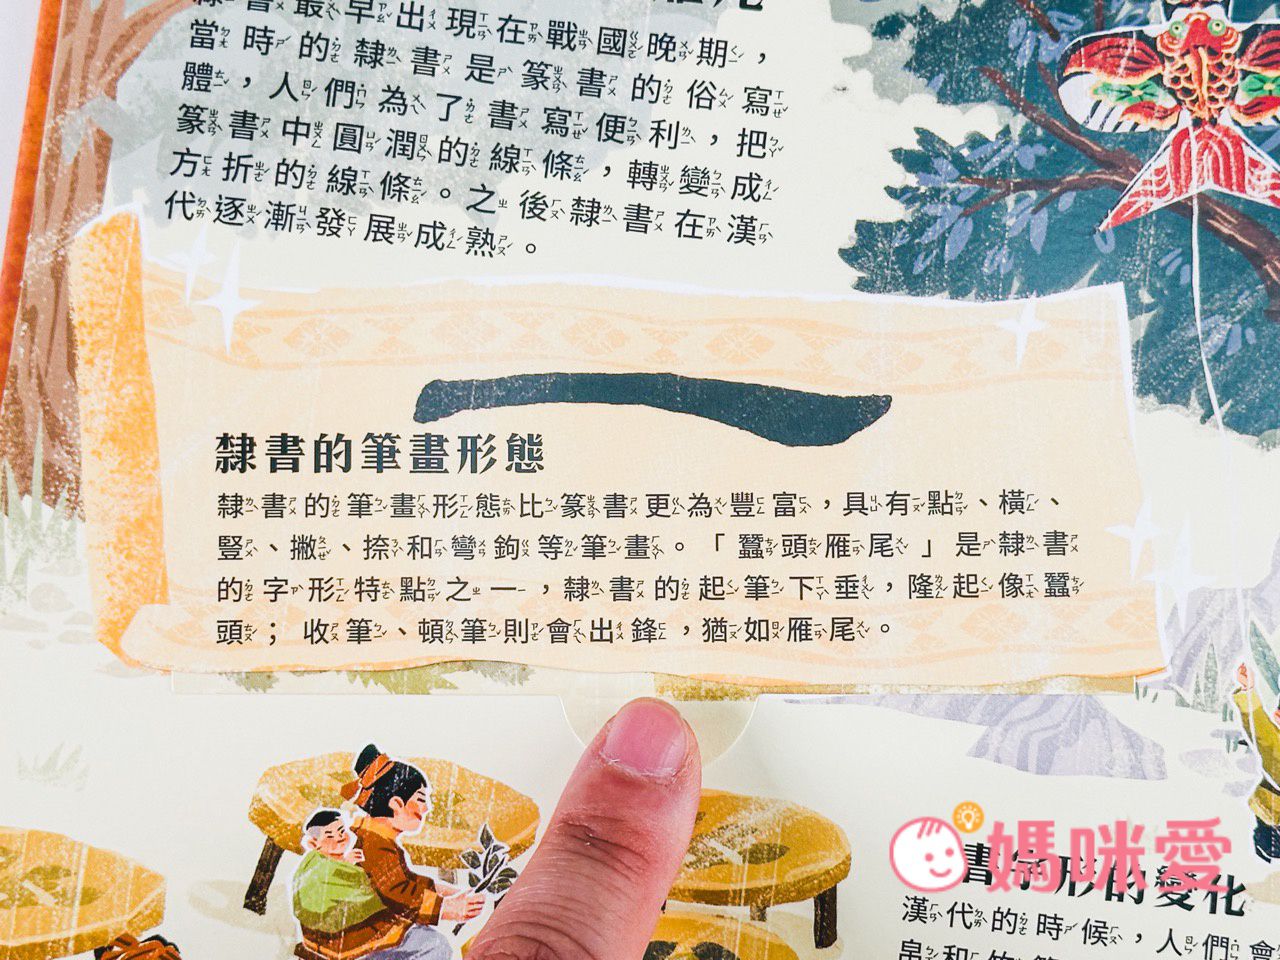 隸書最早出現在戰國晚期，
當時的隸書是篆書的俗寫
體，人們為了書寫便利，把
篆書中圓潤的線條，轉變成
方折的線條。之後隸書在漢
代逐漸發展成熟。
隸書的筆畫形態
隸書的筆畫形態比篆書更為豐富，具有點、橫、
豎、撇、捺和彎鉤等筆畫。「蠶頭雁尾」是隸書
的字形特點之一，隸書的起筆下垂，隆起像蠶
頭；收筆、頓筆則會出鋒，猶如雁尾。
媽咪愛
書字形的變化
漢代的時候，人們會
帛和竹簡